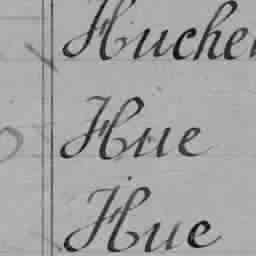 Huche
Hue
Hue